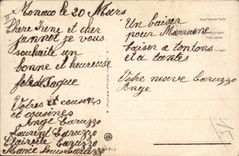 Monaco le 20 Mars
Chere Irene et cher
je vous
souhaite un
bonne et heureuse
fete de Paque
Votres et cousins
et cousines
Ange Caruzzo
Laurent Caruzzo
Caruzzo
Marie Louise Caruzzo
Un baiser
pour Marraine
baiser a tontons et
a tantes
Votre neveu Caruzzo
Ange